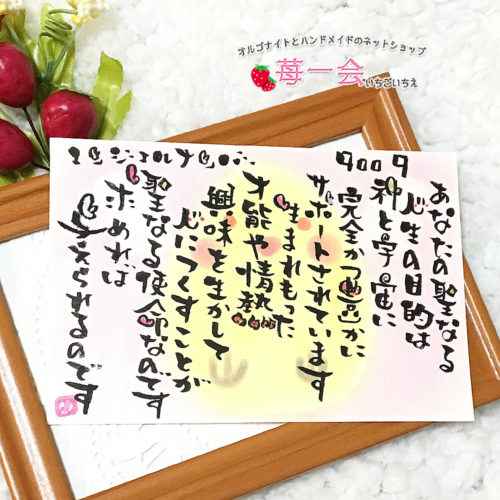 オルゴナイトとハンドメイドのネットショップ
苺一会
いちごいちえ
エンジェルナンバー
9009
あなたの聖なる
人生の目的は
神と宇宙に
完全かつ豊かに
サポートされています
生まれもった
才能や情熱
興味を生かして
人につくすことが
聖なる使命なのです
求めれば
与えられるのです